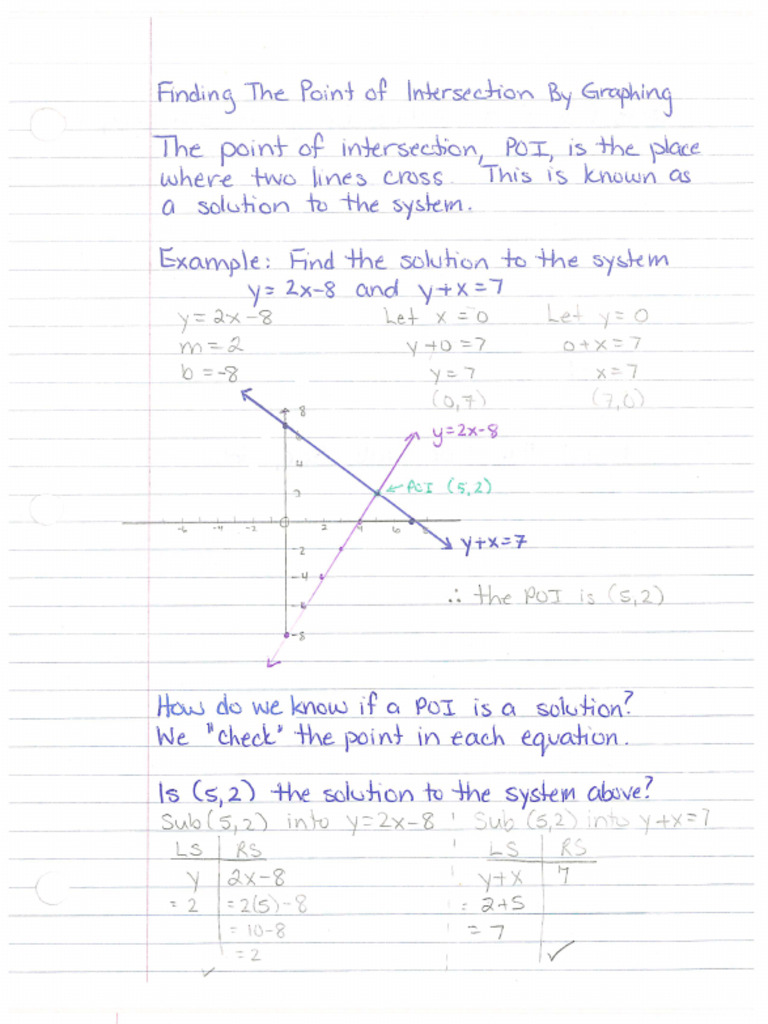 Finding The Point of Intersection By Graphing
The point of intersection, POI, is the place
where two lines cross. This is known as
a solution to the system.
Example: Find the solution to the system
y = 2x-8 and y+x=7
y = 2x-8 Let x = 0 Let y = 0
m = 2 y+0 = 7 0+x = 7
b = -8 y = 7 x = 7
(0,7) (7,0)
8
y=2x-8
4
2
POI (5,2)
-6 -4 -2 0 2 4 6 8
y+x=7
-2
-4
∴ the POI is (5,2)
-6
-8
How do we know if a POI is a solution?
We "check" the point in each equation.
Is (5,2) the solution to the system above?
Sub (5,2) into y=2x-8 Sub (5,2) into y+x=7
LS RS LS RS
y 2x-8 y+x 7
= 2 = 2(5)-8 = 2+5
= 10-8 = 7 ✓
= 2
✓